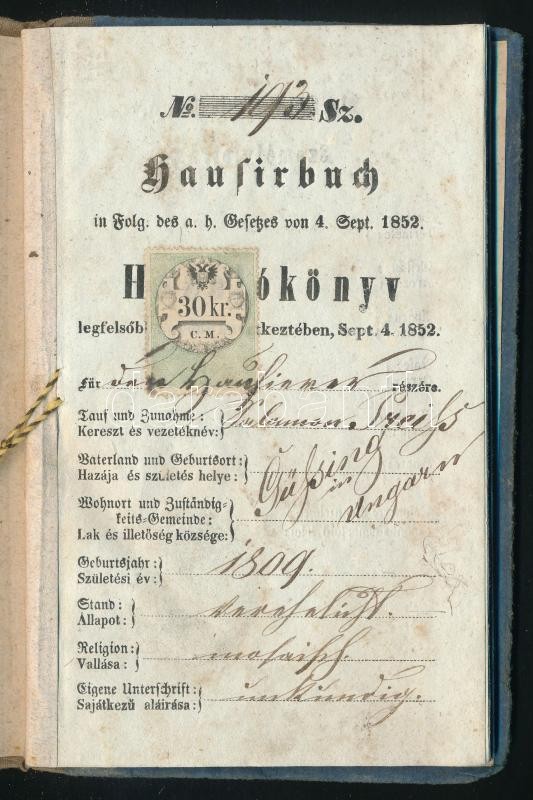 No. 193 Sz.
Hausirbuch
in Folg. des a. h. Gesetzes von 4. Sept. 1852.
H ókönyv
legfelsőb tkeztében, Sept. 4. 1852.
30 kr.
C. M.
Für den Hausierer részére.
Tauf und Zunahme:
Kereszt és vezetéknév:
Salomon
Vaterland und Geburtsort:
Hazája és születés helye:
Güssing
in
Ungarn
Wohnort und Zuständig-
keits-Gemeinde:
Lak és illetőség községe:
Geburtsjahr:
Születési év:
1809.
Stand:
Állapot:
verehelicht.
Religion:
Vallása:
mosaisch
Eigene Unterschrift:
Sajátkezű aláírása:
unkündig.